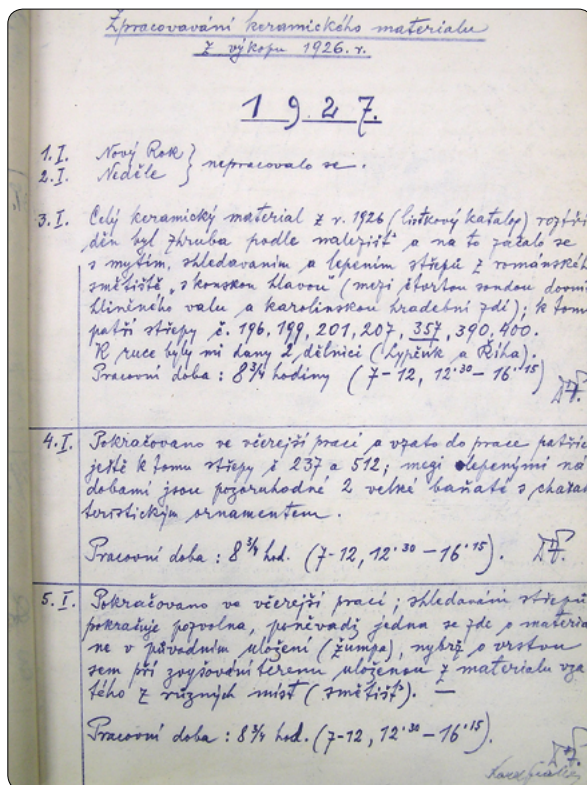 Zpracovavání keramického materialu
z výkopu 1926. r.
1927.
1.I. Nový Rok } nepracovalo se.
2.I. Neděle
3.I. Celý keramický material z r. 1926 (lístkový katalog) roztří
děn byl zhruba podle nalezišť a na to začalo se
s mytím, shledavaním a lepením střepů z románského
smětiště "s konskou hlavou" (mezi čtvrtou sondou dovni
hliněného valu a karolinskou hradební zdí); k tomu
patří střepy č. 196, 199, 201, 207, 357, 390, 400.
K ruce byly mi dany 2 dělníci (Lypčík a Říha).
Pracovní doba : 8 3/4 hodiny (7-12, 12.30 - 16.15)
4.I. Pokračovano ve včerejší praci a vzato do prace patříc
ještě k tomu střepy č 237 a 512; mezi slepenými ná
dobami jsou pozoruhodné 2 velké baňaté s charak
teristickým ornamentem.
Pracovní doba : 8 3/4 hod. (7-12, 12.30 - 16.15).
5.I. Pokračovano ve včerejší praci; shledavání střepů
pokračuje pozvolna, poněvadž jedna se zde o materia
ne v původním uložení (žumpa), nybrž o vrstvu
sem při zvyšování terenu uloženou z materialu vza
tého z různých míst (smětišť). —
Pracovní doba : 8 3/4 hod. (7-12, 12.30 - 16.15).